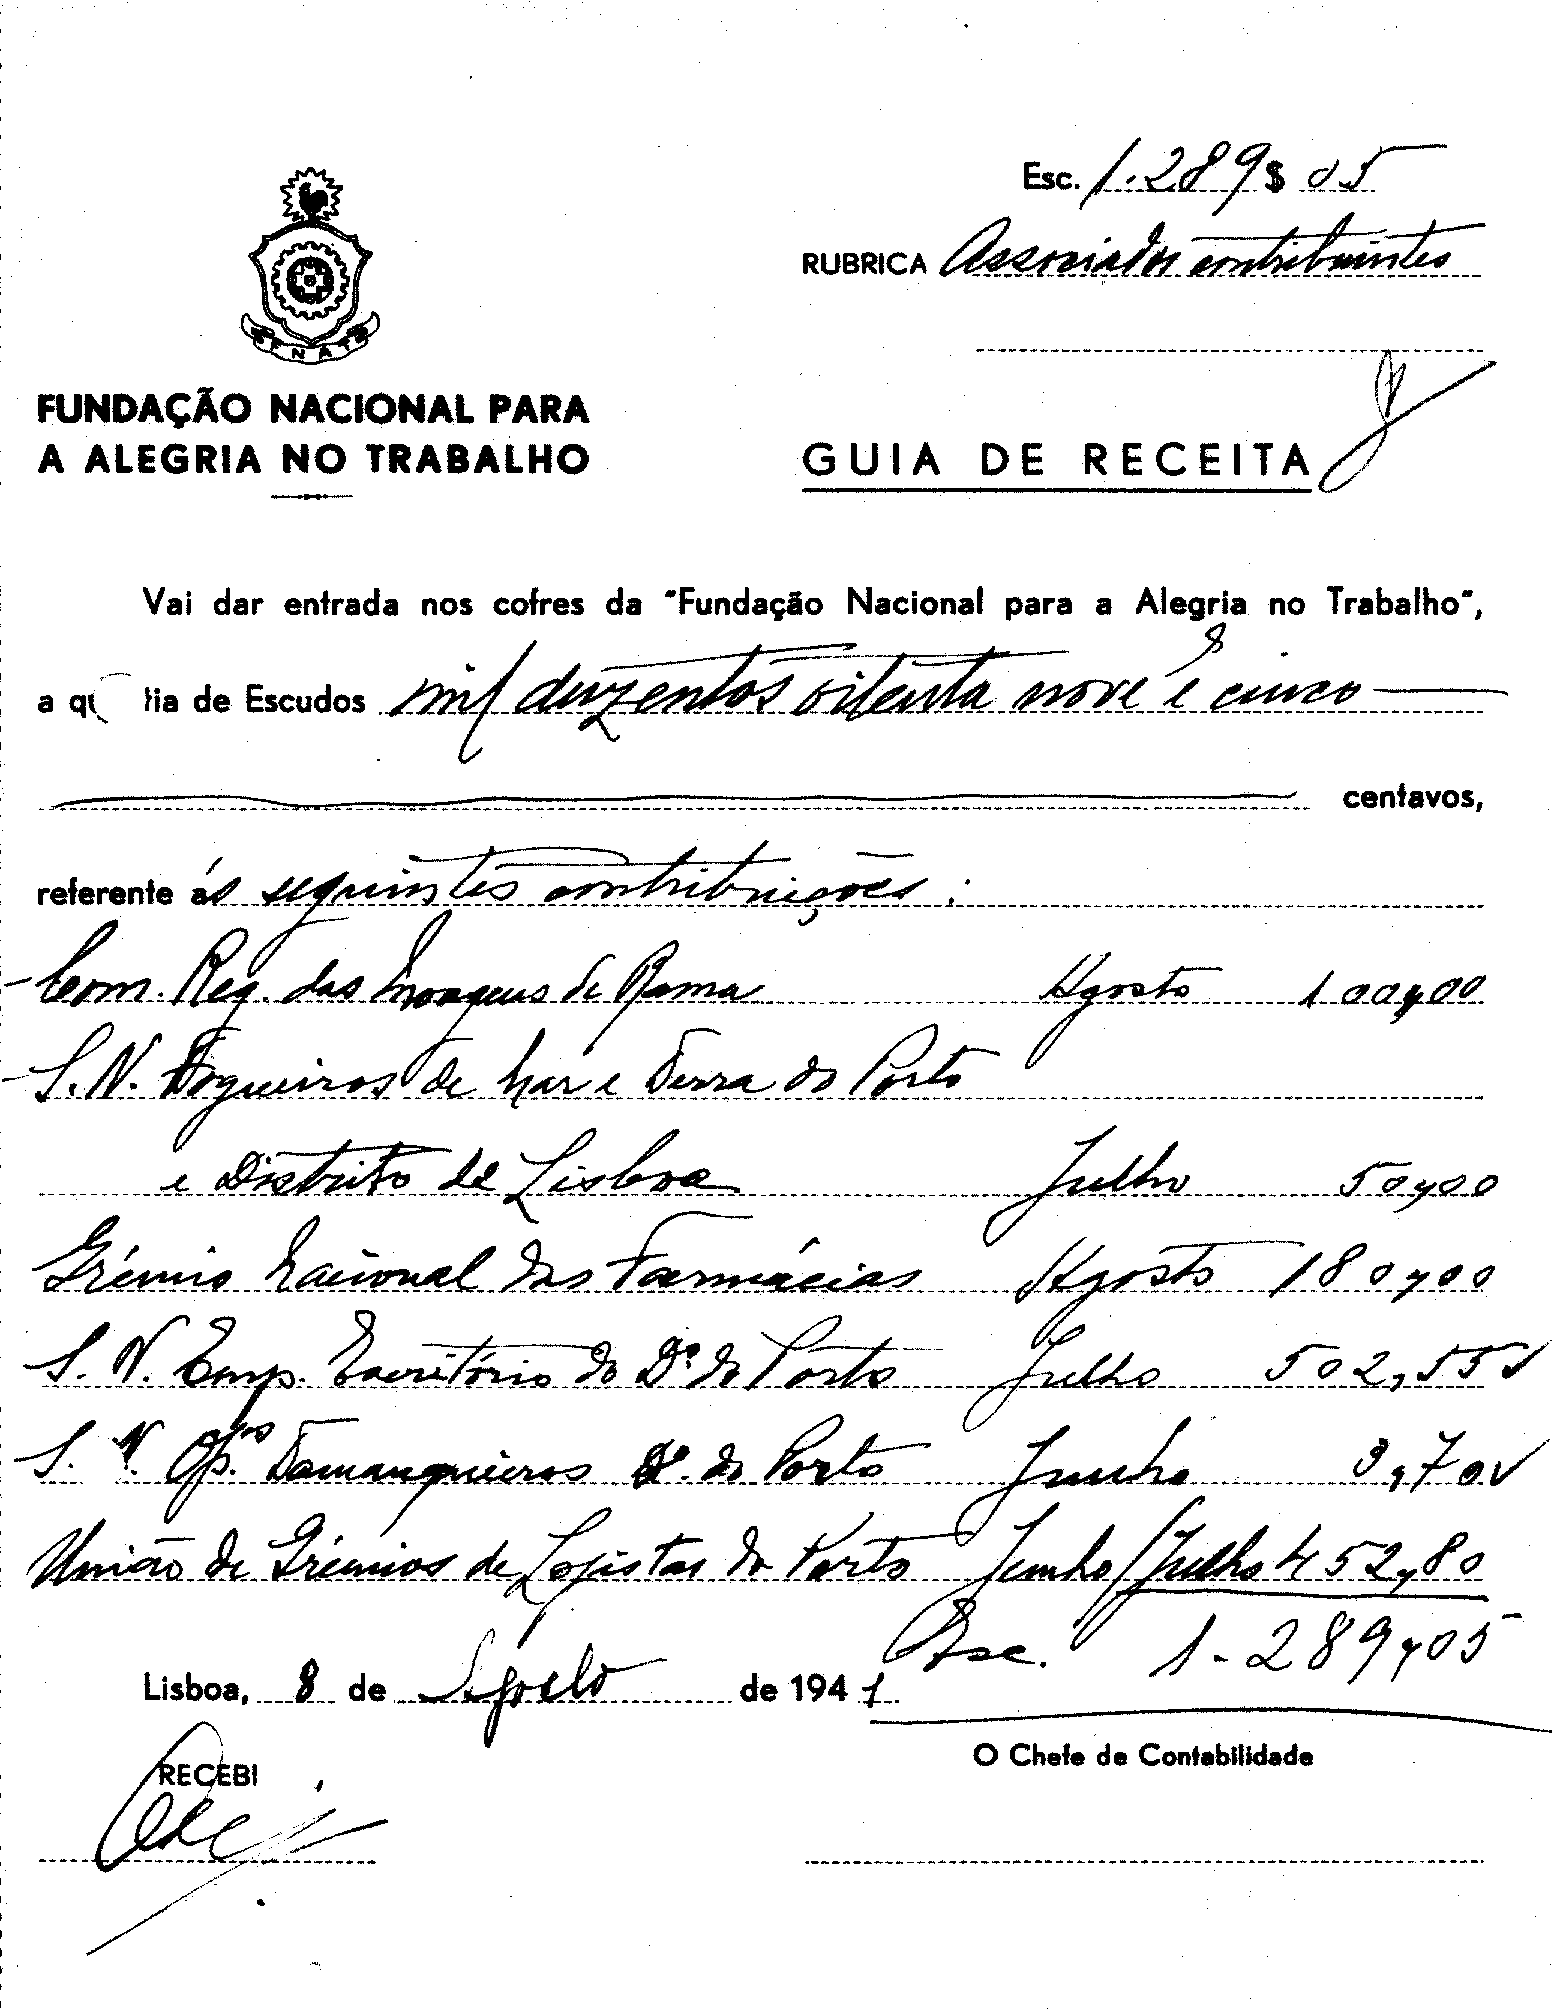 Esc. 1.289$05
RUBRICA Associados contribuintes
FNAT
FUNDAÇÃO NACIONAL PARA
A ALEGRIA NO TRABALHO
GUIA DE RECEITA
Vai dar entrada nos cofres da "Fundação Nacional para a Alegria no Trabalho",
a qu tia de Escudos mil duzentos oitenta nove e cinco
centavos,
referente ás seguintes contribuições:
Com. Reg. das Moagens de Rama Agosto 100,00
S. N. Fogueiros de Mar e Terra do Porto
e Distrito de Lisboa Julho 50,00
Grémio Nacional das Farmácias Agosto 180,00
S. N. Emp. Escritório do Dº. do Porto Julho 502,55
S. N. Opºs. Tamanqueiros Dº. do Porto Junho 3,70
União de Grémios de Lojistas do Porto Junho/Julho 452,80
Esc. 1.289,05
Lisboa, 8 de Agosto de 1941
O Chefe de Contabilidade
RECEBI